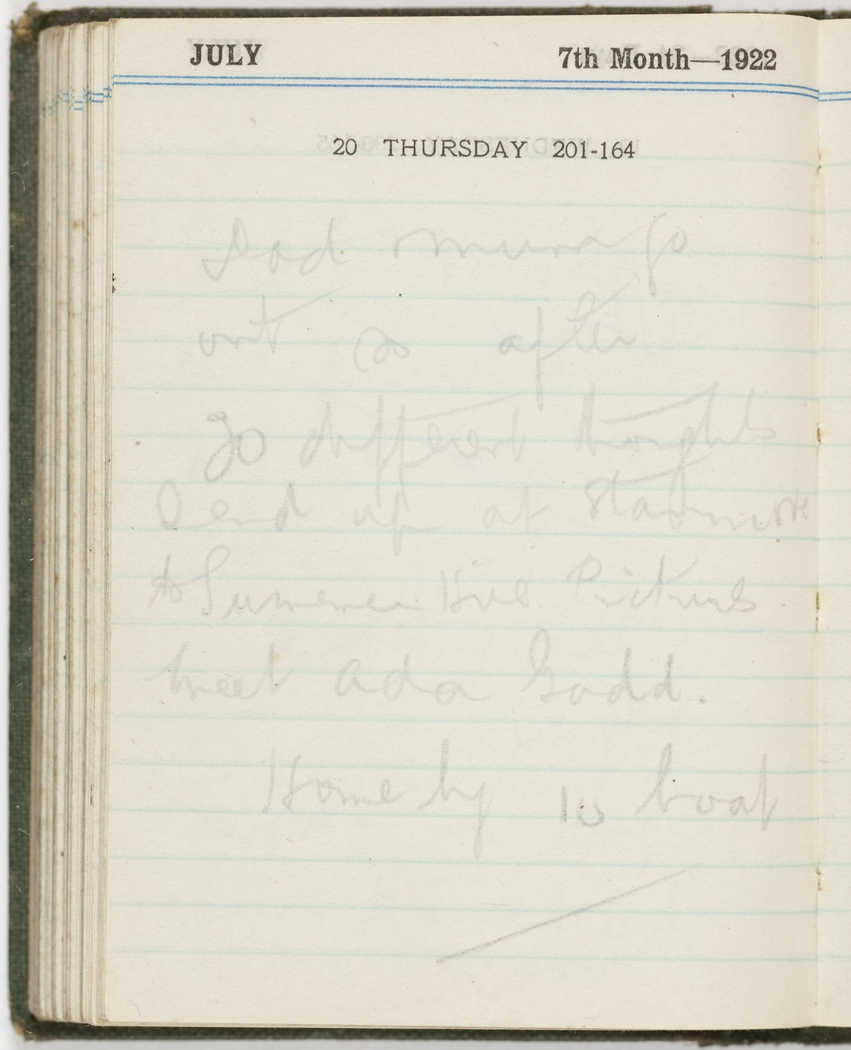 JULY 7th Month—1922
20 THURSDAY 201-164
Dad mum go
out so after
go different thoughts
I end up at Stanmore
to Summer Hill Pictures
meet Ada Gadd.
Home by 10 boat